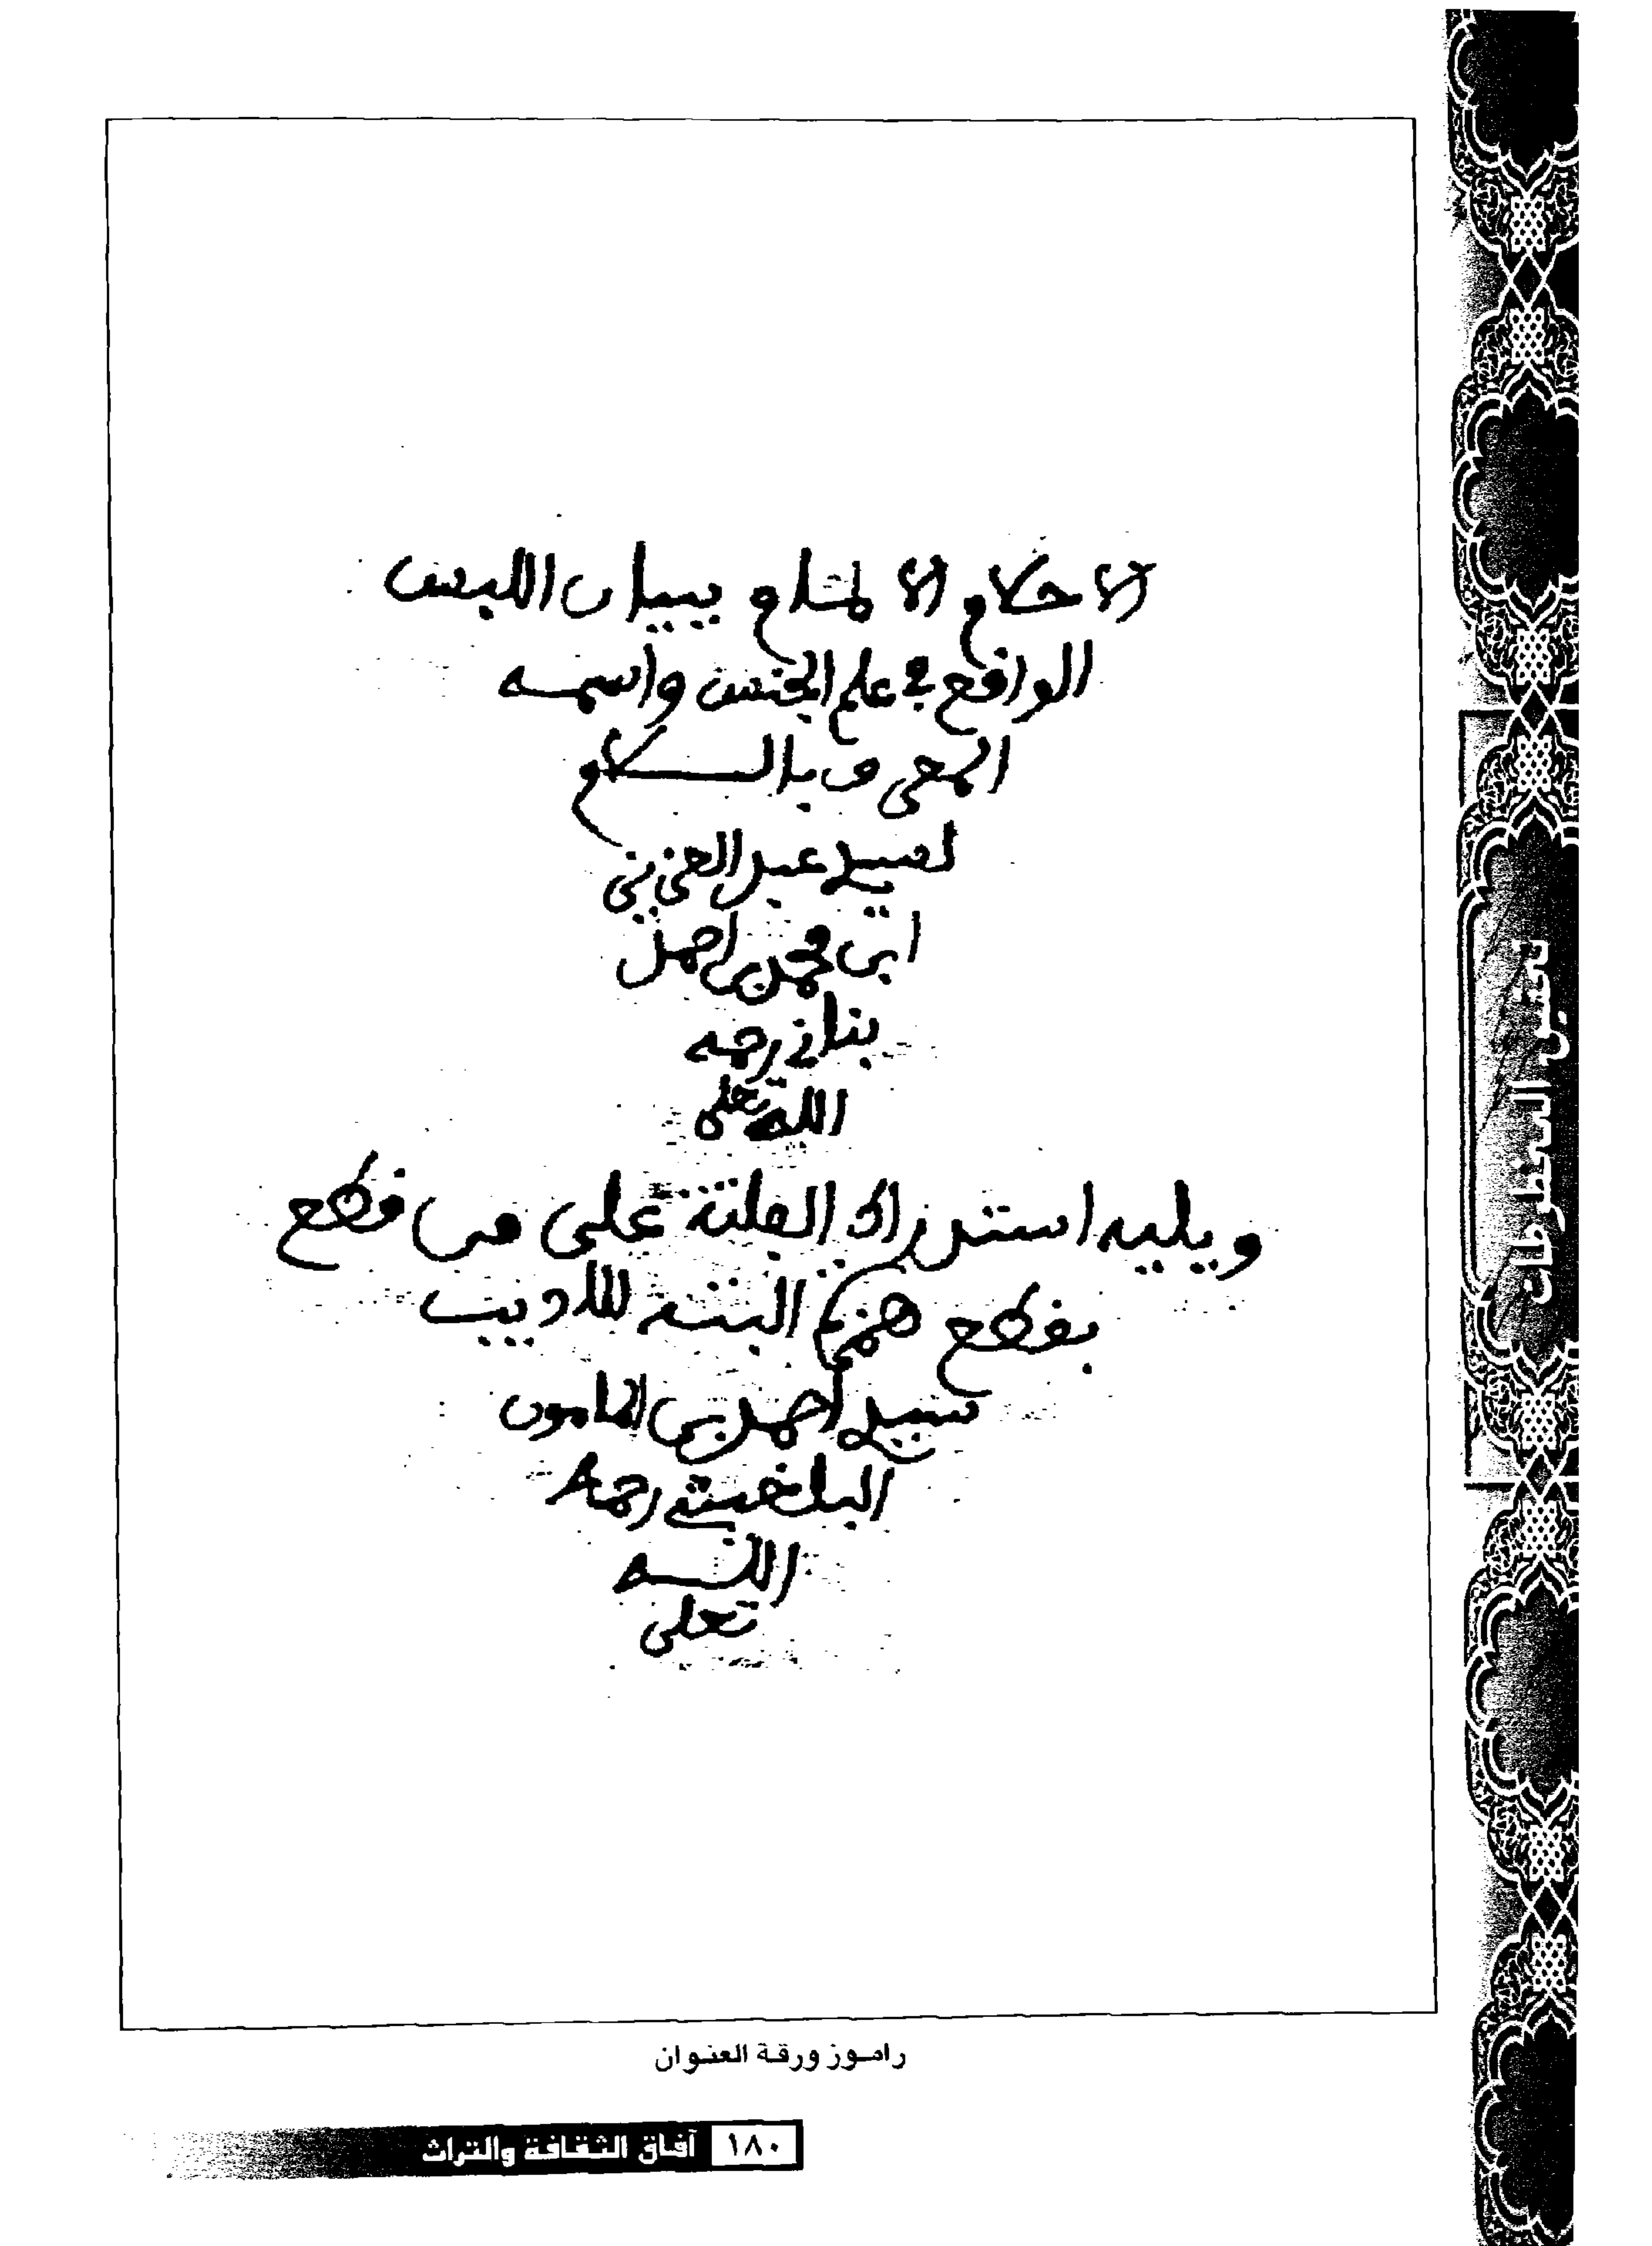 الاحكام والالمام ببيان اللبس
الواقع في علم الجنس واسمه
المعروف باللام
لسيدي عبد العزيز
ابن محمد بن احمد
بناني رحمه
الله تعلى
ويليه استدراك الفلتة على من قطع
بقطع همزة البتة للاديب
سيدي أحمد بن المامون
البلغيثي رحمه
الله
تعلى
تحقيق المخطوطات
راموز ورقة العنوان
١٨٠ آفاق الثقافة والتراث